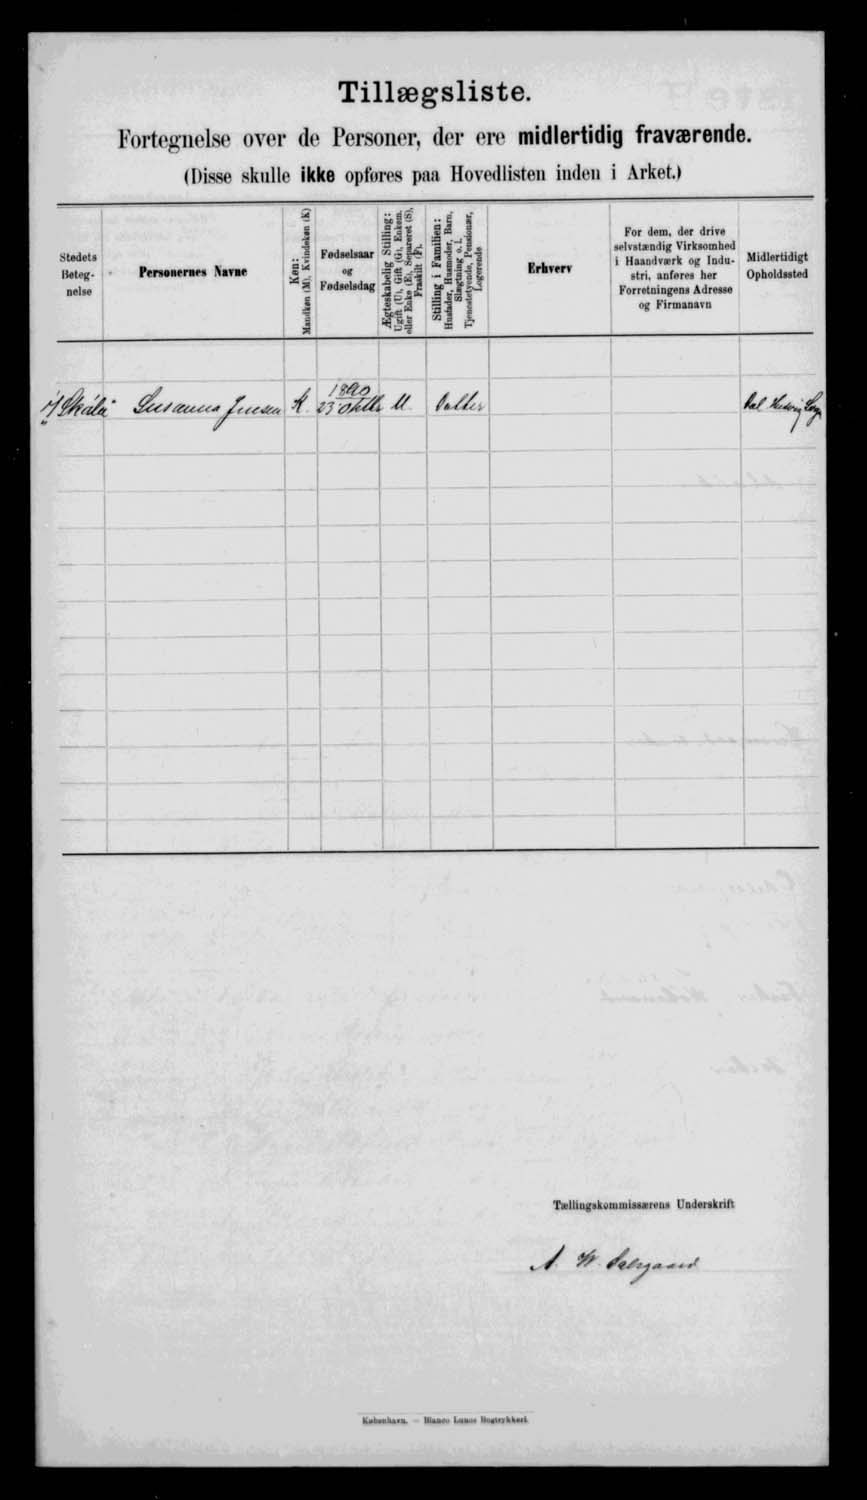 Tillægsliste.
Fortegnelse over de Personer, der ere midlertidig fraværende.
(Disse skulle ikke opføres paa Hovedlisten inden i Arket.)
Stedets
Beteg-
nelse
Personernes Navne
Køn:
Mandkøn (M), Kvindekøn (K)
Fødselsaar
og
Fødselsdag
Ægteskabelig Stilling:
Ugift (U), Gift (G), Enkem.
eller Enke (E), Separeret (S),
Fraskilt (F).
Stilling i Familien:
Husfader, Husmoder, Barn,
Slægtning o. l.
Tjenestetyende, Pensionær,
Logerende
Erhverv
For dem, der drive
selvstændig Virksomhed
i Haandværk og Indu-
stri, anføres her
Forretningens Adresse
og Firmanavn
Midlertidigt
Opholdssted
"i Skála" Susanna Jensen K. 1890 23 Oktbr U. Datter
Tællingskommissærens Underskrift
A. W. Dalsgaard
København. — Bianco Lunos Bogtrykkeri.